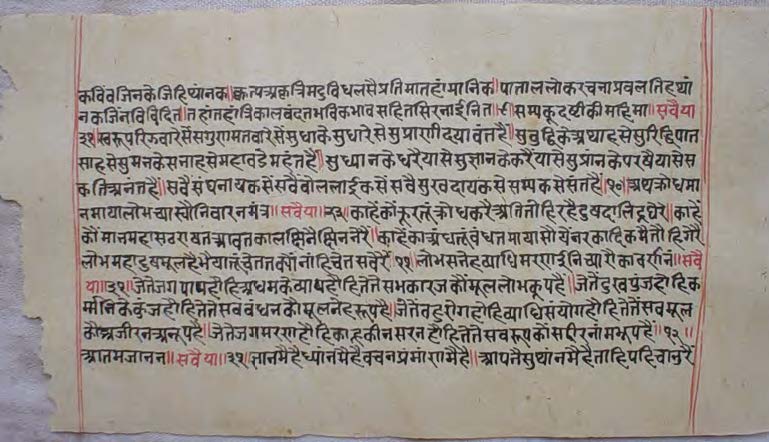 कविवजिनके जिहिथांनक॥ कृत्पअक्रत्रिमदुविधलसैप्रतिमातहांमानिक॥ पाताललोकरचनाप्रवलतिहथां
नकजिनविंवविदित॥ तहांतहांत्रिकालवंदतभविकभावसहितसिरनाईनित॥९॥ सम्पकदृष्टीकीमहिमा॥ सवैया
३१॥ स्वरूपरिझवारेसेसगुणमतवारेसेसुधाकेसुधारेसेसुप्राणीदयावंतहैं॥ सुवुद्विकेअथाहसेसुरिद्दिपात
साहसेसुमनकेसनाहसेमहावडेमहंतहैं॥ सुध्यानकेधरैयासेसुज्ञानकेकरैयासेसुप्रानकेपरषैयासेस
कतिअनंतहैं॥ सवैसंघनायकसेसवैवोललाईकसेसवैसुखदायकसेसम्पकसेसंतहैं॥१०॥ अथक्रोधमा
नमायालोभच्यारौंनिवारनमंत्र॥ सवैया॥२३॥ काहेकौंक्रूरतूंक्रोधकरैअतितोहिरहैदुषदालिद्रघेरे॥ काहे
कौंमानमहासठराषतआवतकालछिनैछिननेरे॥ काहेकौंअंधतूंवंधतमायासोंयेनरकादिकमैंतोहिगेरै
लोभमहादुषमूलहैभैयातूंचेततक्योंनांहिचेतसवेरें॥११॥ लोभसनेहव्याधिमरणईनिच्यारौंकावर्णनं॥ सवै
या॥३१॥ जेतेजगपापहोहिअधमकेव्यापहोहितेतेसभकारजकौंमूललोभकूपहैं॥ जेतेंदुखपुंजहोहिक
र्मनिकेकुंजहोहितेतेसववंधनकौमूलनेहरूपहैं॥ जेतेंवहुरोगहोहिव्याधिसंयोगहोहितेतेंसवमूल
कौअजीरनअनूपहैं॥ जेतेजगमरणहोहिकाहूकीनसरनहोहितेतेसवरूपकौसरीरनांमभूपहैं॥१२॥
आतमजानन॥ सवैया॥३१॥ ज्ञानमैहैध्यांनमैहैवचनप्रंमांणमैहै॥ आपनेसुथांनमैहैताहिपहिचानुरैं